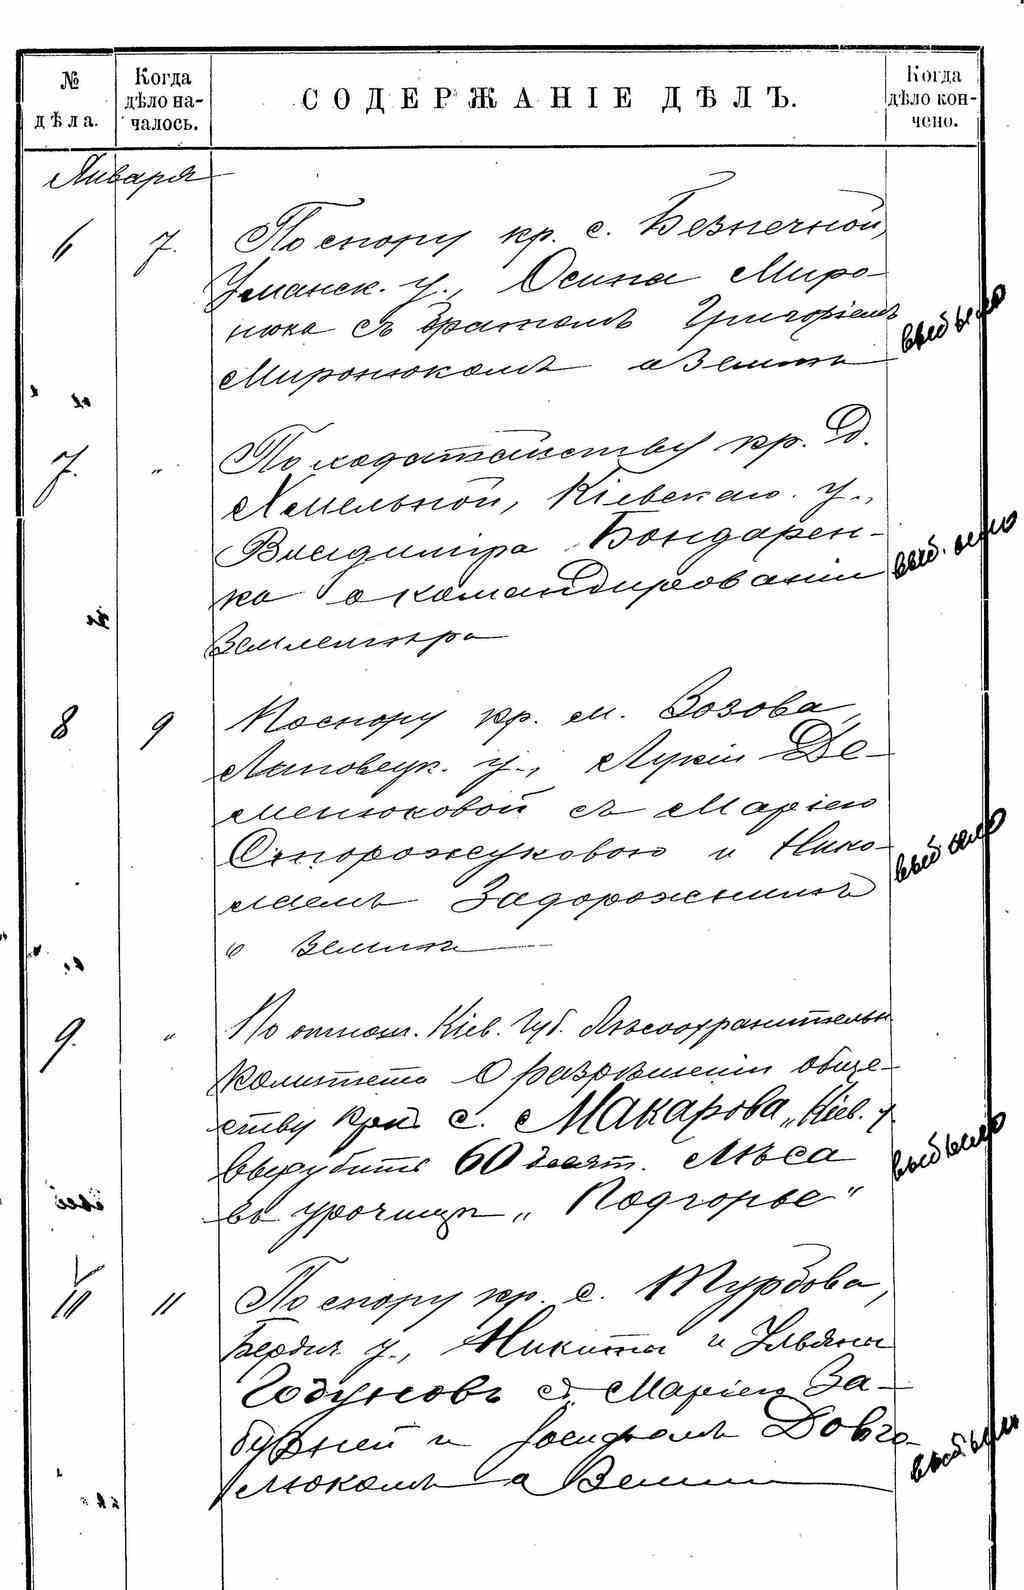 № дѣла.
Когда дѣло началось.
СОДЕРЖАНІЕ ДѢЛЪ.
Когда дѣло кончено.
Января
6 7. По спору кр. с. Безпечной,
Уманск. у., Осипа Миро-
нюка съ братомъ Григоріемъ
Миронюкомъ о землѣ
выбыло
7. " По ходатайству кр. д.
Хмельной, Кіевскаго у.,
Владиміра Бондарен-
ко о командированіи
землемѣра
выбыло
8 9 По спору кр. м. Зозова,
Липовецк. у., Лукіи Де-
менюковой съ Маріею
Сторожуковою и Нико-
лаемъ Задорожнимъ
о землѣ
выбыло
9. " По отнош. Кіев. Губ. Лѣсоохранительн.
Комитета о разрѣшеніи обще-
ству кр. с. Макарова, Кіев. у.
вырубить 60 десят. лѣса
въ урочищѣ „Подгорье"
выбыло
10 11 По спору кр. с. Турбова,
Бердич. у., Никиты и Ульяны
Годуновъ съ Маріею За-
бузней и Іосифомъ Довга-
люкомъ о земли
выбыло